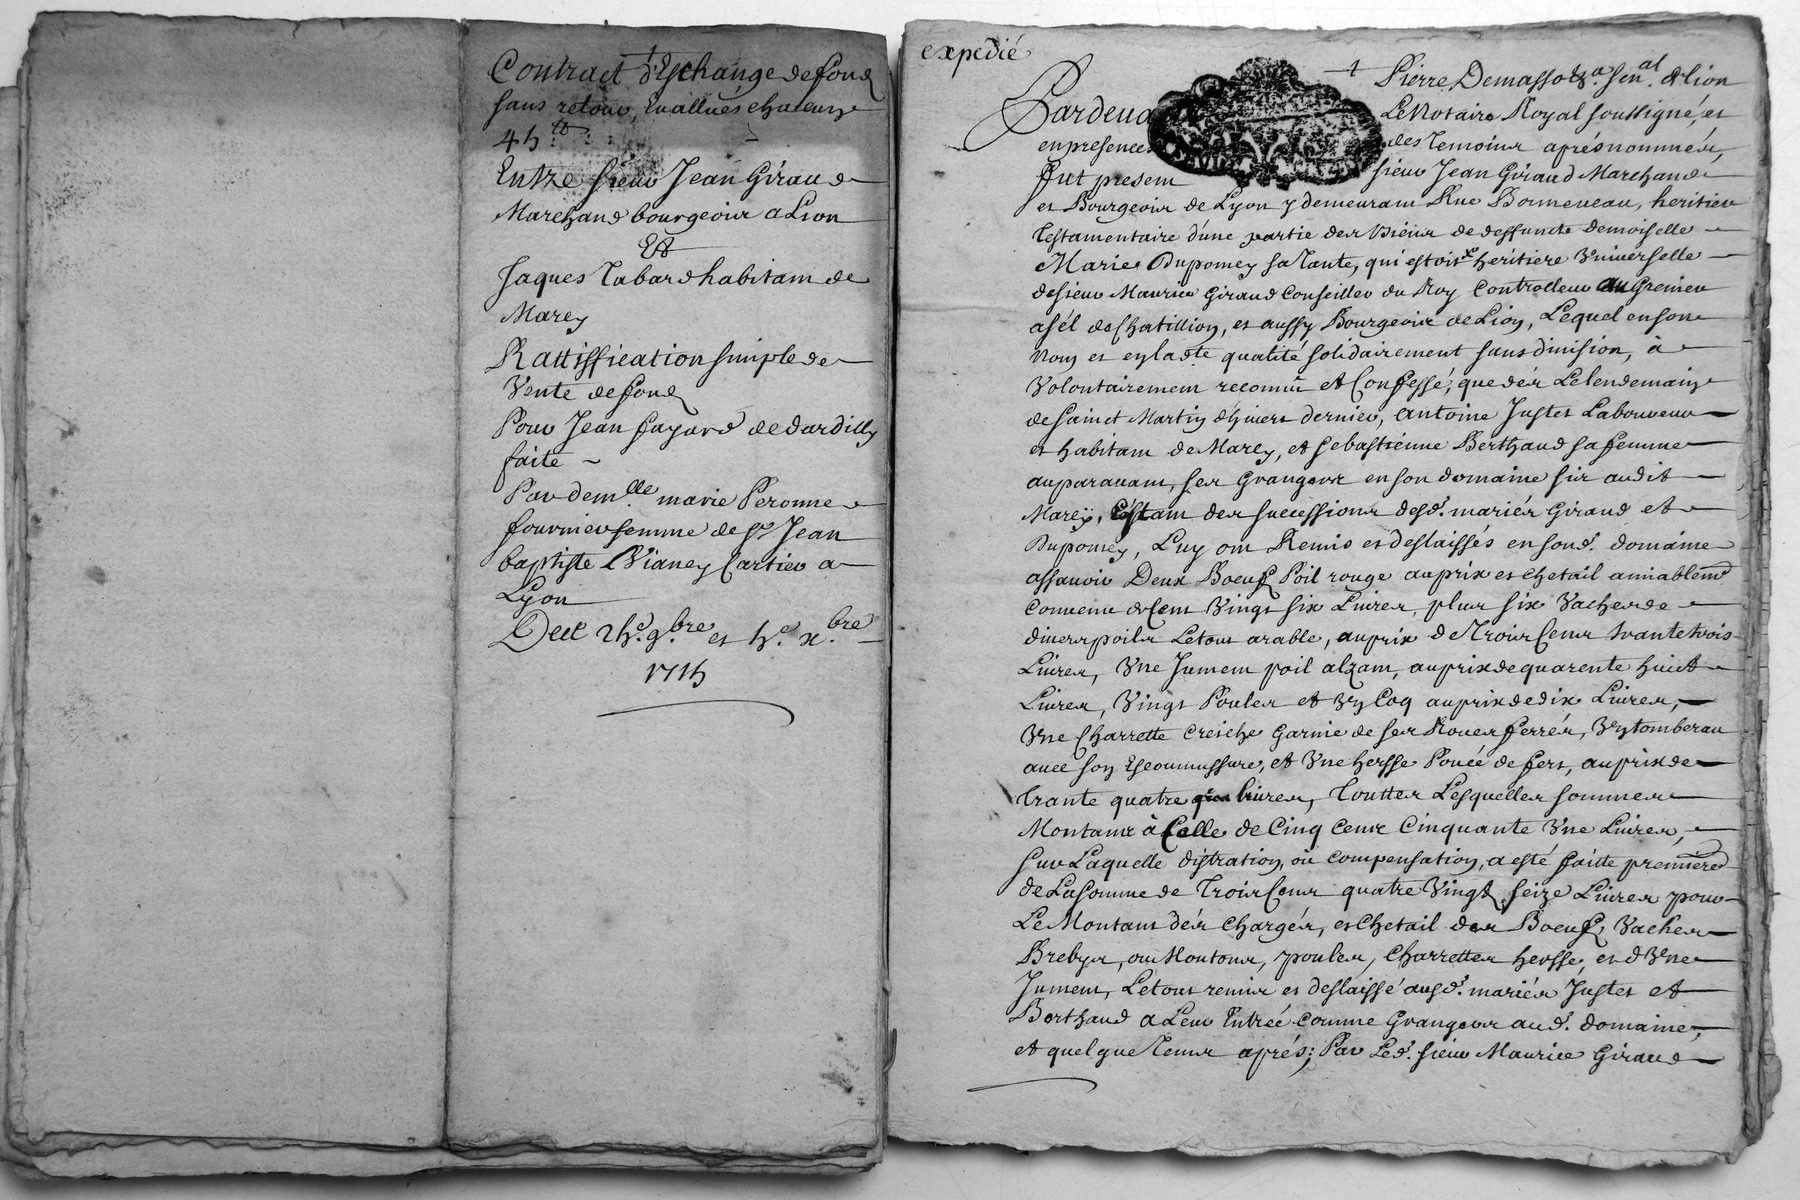 Contract d'Eschange de fond
sans retour, Evalluës chacun
45.tt
Entre sieur Jean Giraud
Marchand bourgeois a Lion
Et
Jaques Tabard habitant de
Marcy
Rattiffication simple de
Vente de fond
Pour Jean fayard de dardilly
faite
Par dem.lle marie Peronne
fournier femme de Sr Jean
baptiste Vianey Cartier a
Lyon
Des 25.e 9.bre et 5.e x.bre
1715
expedié
Pierre Demasso Sen.al de lion
Pardeuant Le Notaire Royal soussigné, et
en presence des Temoins aprés nommés,
fut present sieur Jean Giraud Marchand
et Bourgeois de Lyon y demeurant Rue Bonneueau, heritier
Testamentaire d'une partie des Biens de deffuncte demoiselle
Marie Dupomey sa Tante, qui estoit heritiere Vniuerselle
de sieur Maurice Giraud Conseiller du Roy Controlleur au Grenier
a sél de Chatillion, et aussy Bourgeois de Lion, Lequel en son
Nom et en lad.te qualité solidairement sans diuision, à
Volontairement reconnû et Confessé, que dés Le lendemain
de Sainct Martin d'hiuert dernier, Antoine Justet Laboureur
et habitant de Marcy, et Sebastienne Berthaud sa femme
auparauant, ses Grangers en son domaine sis audit
Marcy, Estant des successions desd. mariés Giraud et
Dupomey, Luy ont Remis et deslaissés en sond. domaine
assauoir Deux Boeufs Poil rouge au prix et chetail amiablem.t
Conuenu de Cent Vingt six Liures, plus six Vaches de
diuers poils Le tout arable, au prix de Trois Cents trante trois
Liures, Vne Jument poil alzam, au prix de quarente huict
Liures, Vingt Poules et Vn Coq au prix de dix Liures,
Vne Charrette Creiche Garnie de ses Roues ferrés, Vn tomberau
auec son Escoumussure, et Vne hersse Pouéé de fert, au prix de
Trante quatre liures, Touttes Lesquelles sommes
Montant à Celle de Cinq Cents Cinquante Vne Liures,
sur Laquelle distration, où compensation, a esté faitte premiérem.t
de La somme de Trois Cents quatre Vingt seize Liures pour
Le Montant dés chargés, et chetail des Boeufs, Vaches
Brebys, ou Moutons, poules, Charrettes hersse, et d'Vne
Jument, Le tout remis et deslaissé ausd. mariés Justet et
Berthaud a Leur Entréé comme Grangers aud. domaine,
et quelque Temps aprés; Par Led. sieur Maurice Giraud